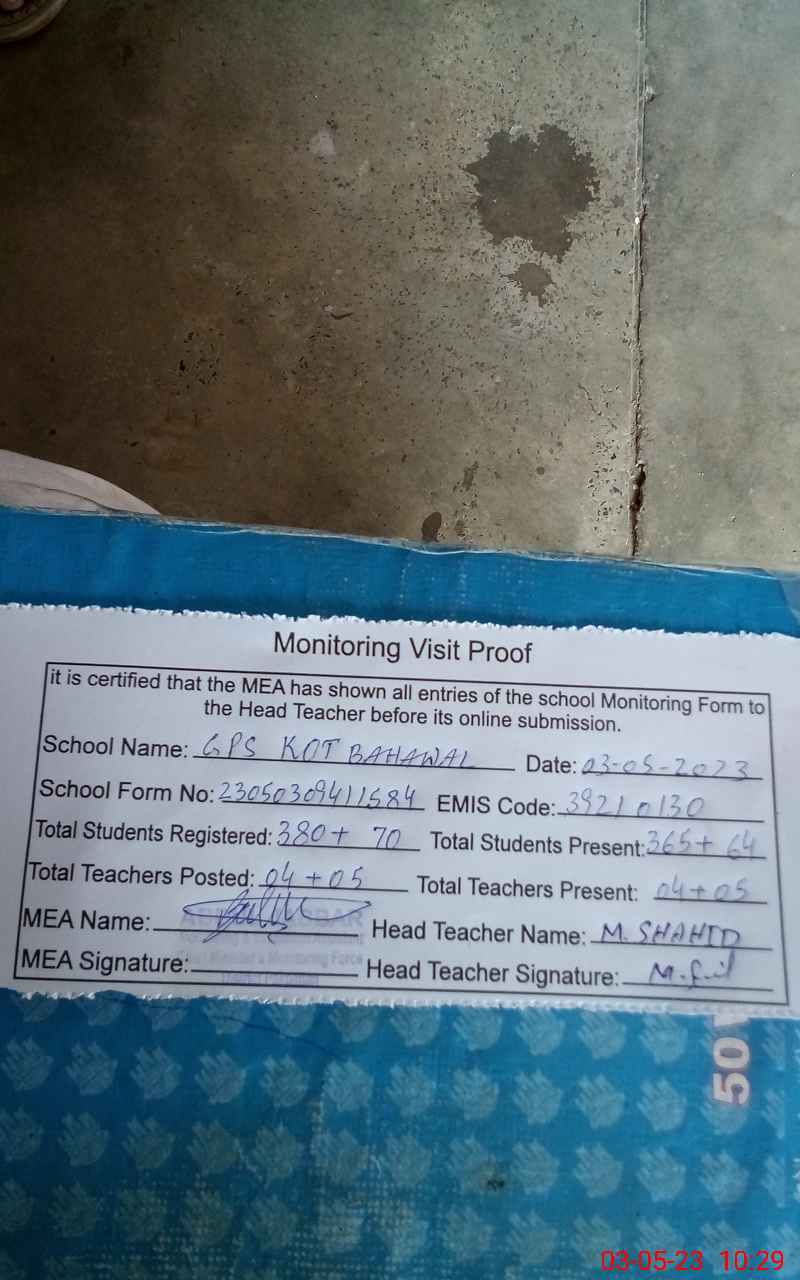 Monitoring Visit Proof
it is certified that the MEA has shown all entries of the school Monitoring Form to
the Head Teacher before its online submission.
School Name: GPS KOT BAHAWAL Date: 03-05-2023
School Form No: 23050309411584 EMIS Code: 39210130
Total Students Registered: 380+ 70 Total Students Present: 365+ 64
Total Teachers Posted: 04+05 Total Teachers Present: 04+05
MEA Name: Head Teacher Name: M. SHAHID
MEA Signature: Head Teacher Signature:
50
03-05-23 10:29